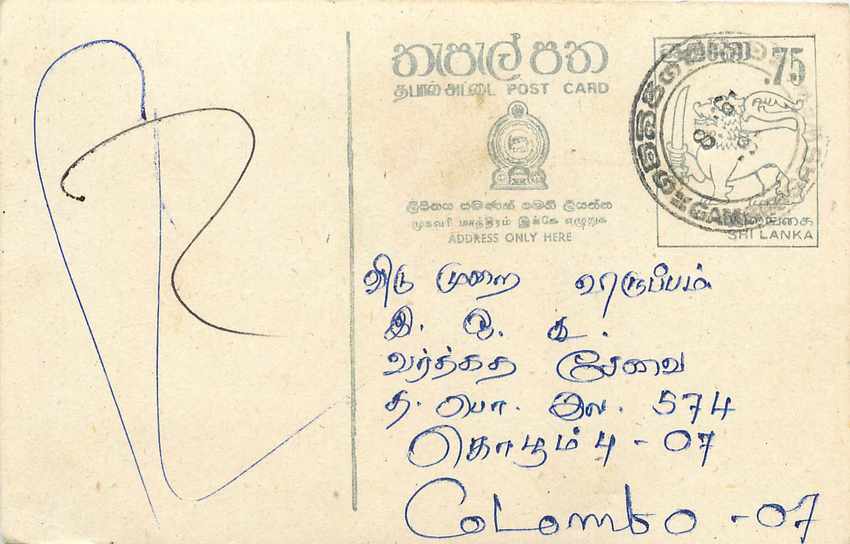 තැපැල් පත
தபால் அட்டை POST CARD
.75
ලිපිනය පමණක් මෙහි ලියන්න
முகவரி மாத்திரம் இங்கே எழுதுக
ADDRESS ONLY HERE
SRI LANKA
இரு முறை விருப்பம்
இ. ஒ. க.
வர்த்தக சேவை
த. பொ. இல. 574
கொழும்பு - 07
Colombo - 07